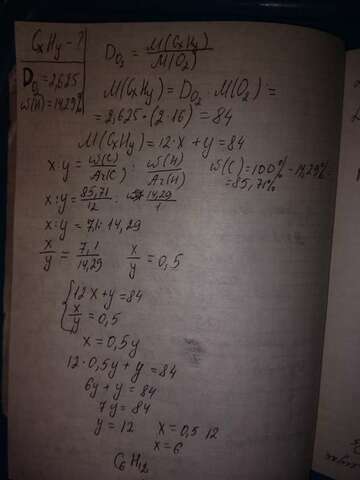 CxHy - ?
D O2 = 2,625
ω(H) = 14,29%
D O2 = M(CxHy) / M(O2)
M(CxHy) = D O2 · M(O2) =
= 2,625 · (2·16) = 84
M(CxHy) = 12·x + y = 84
x:y = ω(C)/Ar(C) : ω(H)/Ar(H)
ω(C) = 100% - 14,29% =
= 85,71%
x:y = 85,71/12 : 14,29/1
x:y = 7,1 : 14,29
x/y = 7,1/14,29 x/y = 0,5
{ 12x + y = 84
x/y = 0,5
x = 0,5y
12·0,5y + y = 84
6y + y = 84
7y = 84
y = 12 x = 0,5 12
x = 6
C6H12